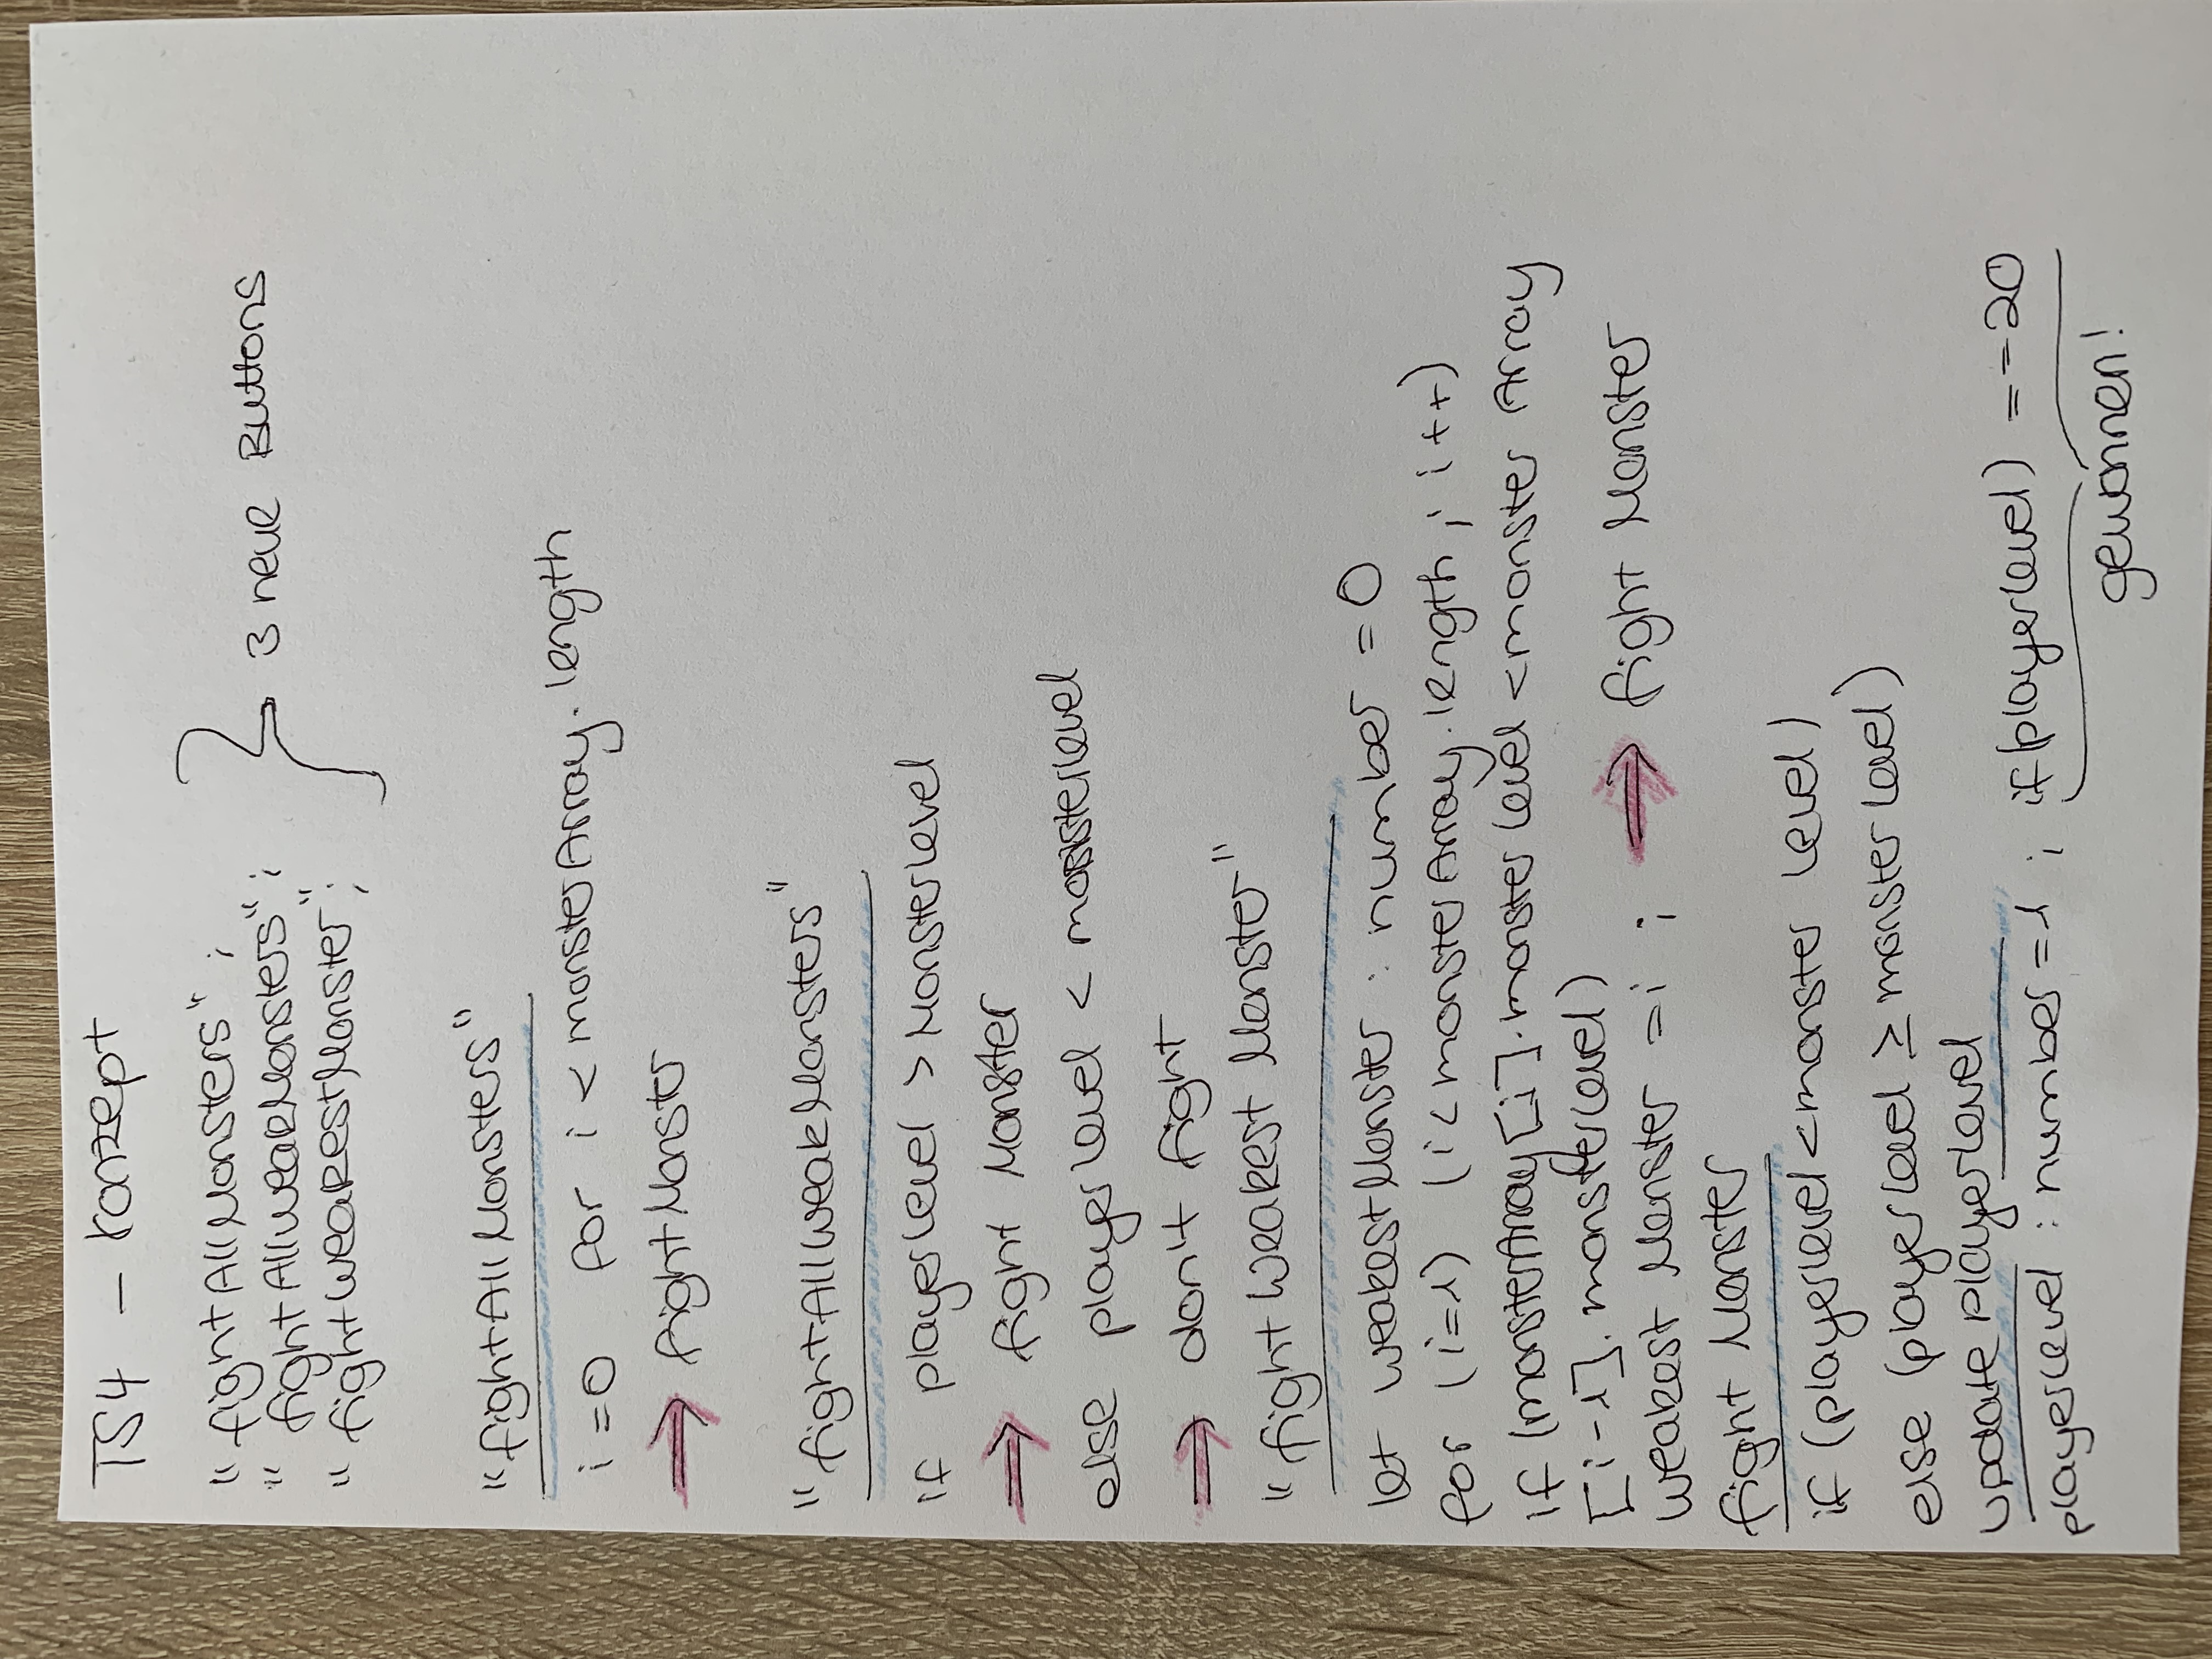 TS4 – Konzept
"fightAllMonsters";
"fightAllWeakMonsters"; 3 neue Buttons
"fightWeakestMonster";
"fightAllMonsters"
i=0 for i < monsterArray.length
⇒ fightMonster
"fightAllWeakMonsters"
if playerLevel > MonsterLevel
⇒ fight Monster
else playerLevel < monsterlevel
⇒ don't fight
"fight Weakest Monster"
let weakestMonster : number = 0
for (i=1) (i<monsterArray.length; i++)
if (monsterArray[i].monsterLevel < monster Array
[i-1].monsterlevel)
weakest Monster = i ; ⇒ fight Monster
fight Monster
if (playerlevel < monster Level)
else (playerLevel ≥ monster Level)
update playerLevel
playerlevel : number = 1 ; if(playerlevel) == 20
gewonnen!